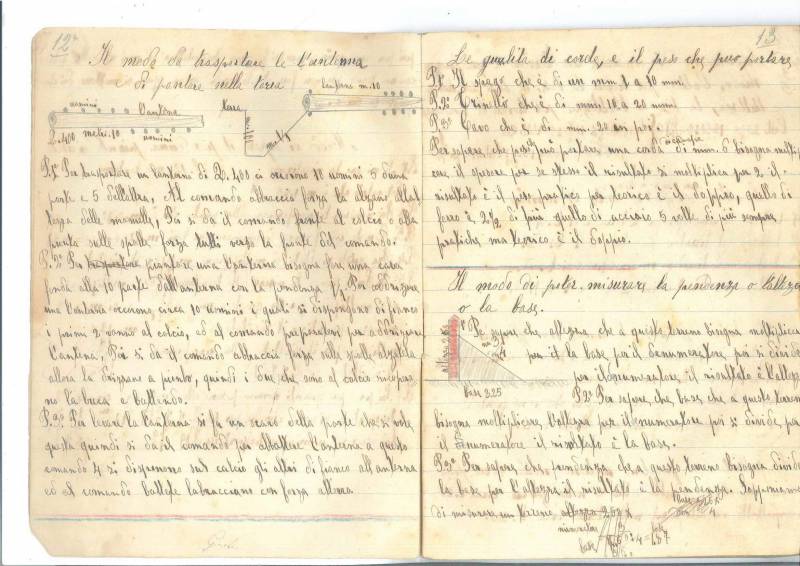 12
Il modo da trasportare le l'antenna
e di piantare nella terra
uomini l'antena terra lantena m. 10
Q. 400 metri. 10 uomini
P. 1° Per trasportare un l'antena di Q. 400 ci occorono 10 uomini 5 di una
ponte e 5 dell'altra, Al comando abbraccio forza la alzano
tezza delle Poi si da il comando fronte al calcio o alla
punta sulle spalle forza tutti verso la fronte del comando.
P. 2° Per trasportare piantare una l'antena bisogna fare una cava
fonda alla 10 parte dall'antena con la pendenza 1/1. Per
una l'antena occorono, circa 10 uomini i quali si dispongono di fianco
i primi 2 vanno al calcio, ed al comando preparatevi per
l'antena, Poi si da il comando abbraccio forza sulle spalle
allora la drizzano a piombo, quindi i due che sono al calcio
no la buca e battendo.
P. 3° Per levare la l'antena si fà un cavo della ponte che si vole,
questa quindi si da il comando per abbattere l'antena a questo
comando 4 si dispongono sul calcio gli altri di fianco all'antenna
ed al comando con forza allora
13
Le qualità di corde, e il peso che puo portare
P. 1° Il spago che è di un mm 1 a 10 mm.
P. 2° Trinello che è di mm. 10 a 20 mm
P. 3° Cavo che è di mm. 20 in poi.
Per sapere che peso può portare una corda di mm. 6 bisogna
care il spesore per se stesso il risultato si moltiplica per 2 il
risultato è il peso pratico per teorico è il doppio, quello di
ferro è 2 1/2 di più quello di acciaro 5 volte di più sempre
pratiche ma teorico è il doppio.
Il modo di poter misurare la pendenza o l'altezza
o la base.
1° Se sapere che altezza che a questo tereno bisogna moltiplica
per il la base per il denumeratore poi si divide
per il numeratore il risultato è l'altezza
altezza
base 325
P. 2° Per sapere che base che a questo tereno
bisogna moltiplicare l'altezza per il numeratore poi si divide per
il numeratore il risultato è la base.
P. 3° Per sapere che pendenza che a questo tereno bisogna divide
la base per l'altezza il risultato è la pendenza. Supponiamo
di misurare un tereno altezza
numeratore
base